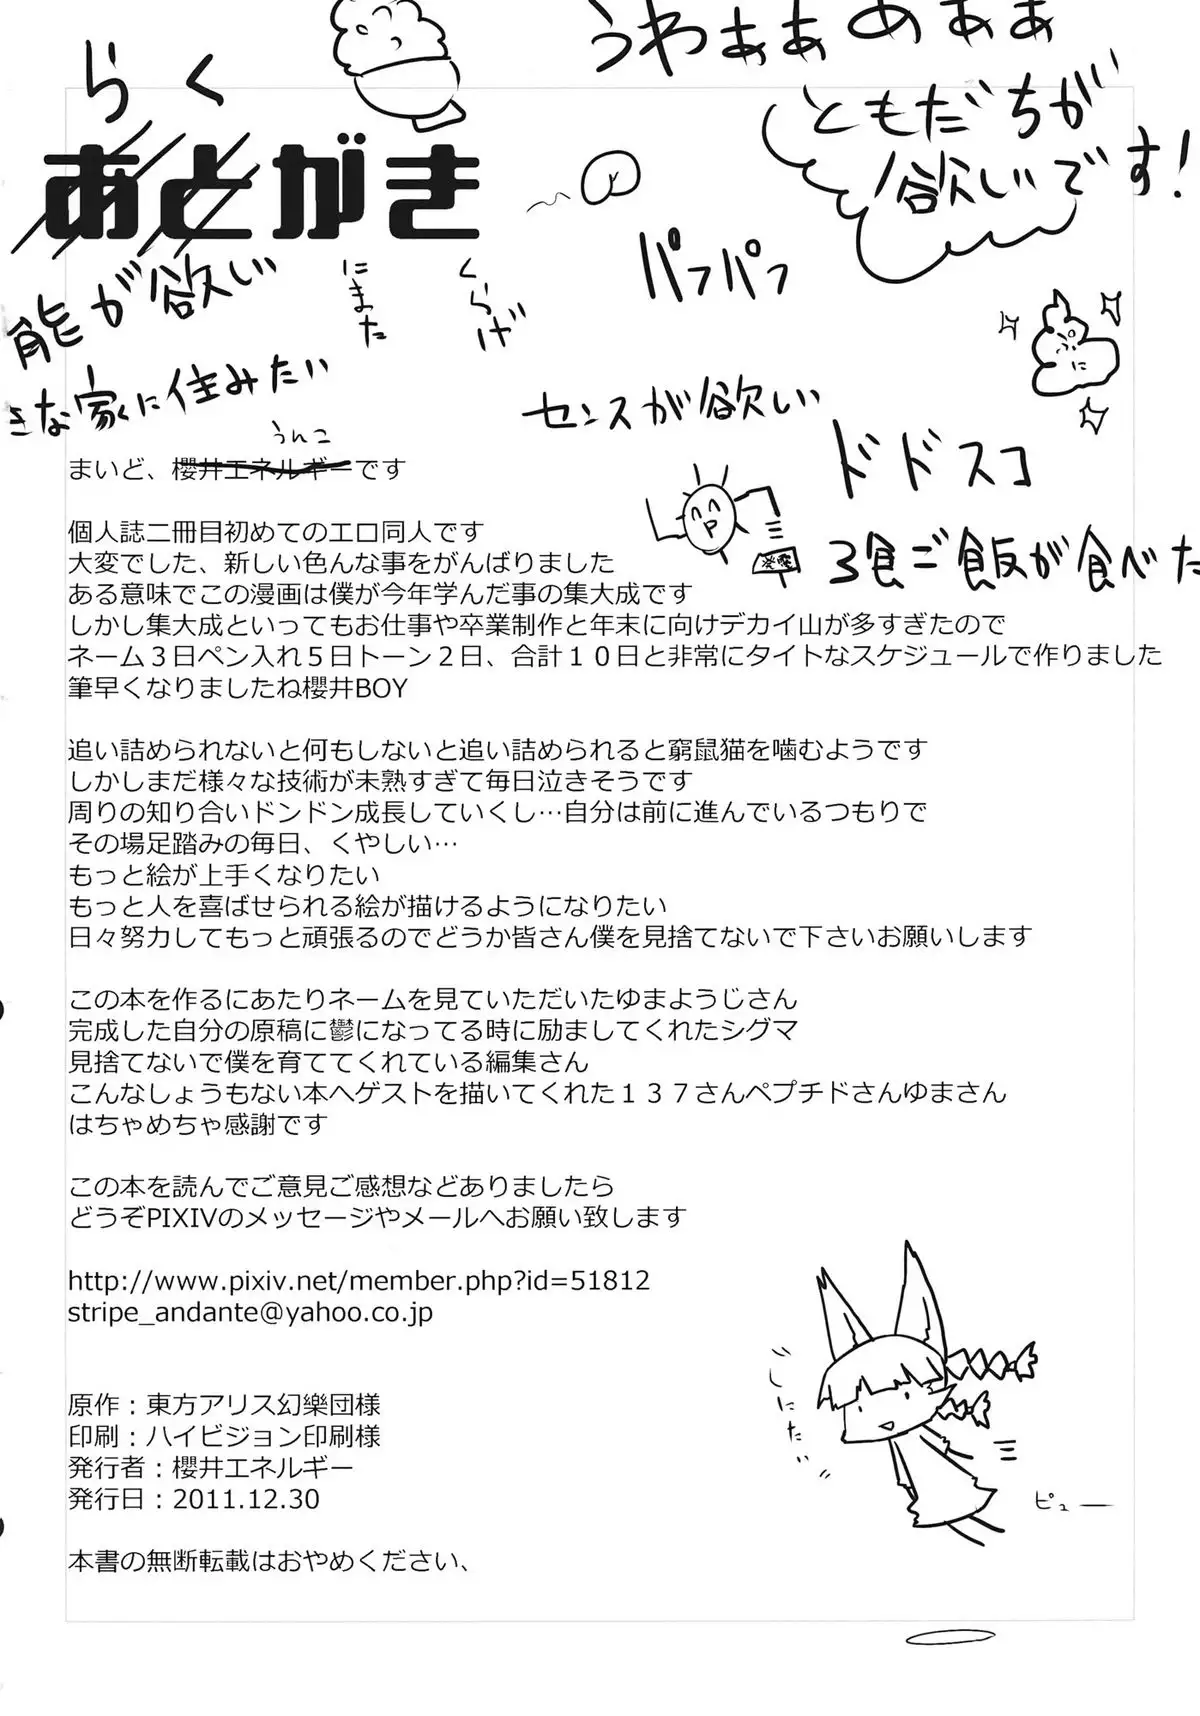 うわぁぁあぁぁ
らく
ともだちが
欲しいです！
あとがき
パフパフ
能が欲しい
にまた
くらげ
きな家に住みたい
センスが欲しい
うんこ
ドドスコ
3食ご飯が食べた
まいど、櫻井エネルギーです
個人誌二冊目初めてのエロ同人です
大変でした、新しい色んな事をがんばりました
ある意味でこの漫画は僕が今年学んだ事の集大成です
しかし集大成といってもお仕事や卒業制作と年末に向けデカイ山が多すぎたので
ネーム３日ペン入れ５日トーン２日、合計１０日と非常にタイトなスケジュールで作りました
筆早くなりましたね櫻井BOY
追い詰められないと何もしないと追い詰められると窮鼠猫を噛むようです
しかしまだ様々な技術が未熟すぎて毎日泣きそうです
周りの知り合いドンドン成長していくし…自分は前に進んでいるつもりで
その場足踏みの毎日、くやしい…
もっと絵が上手くなりたい
もっと人を喜ばせられる絵が描けるようになりたい
日々努力してもっと頑張るのでどうか皆さん僕を見捨てないで下さいお願いします
この本を作るにあたりネームを見ていただいたゆまようじさん
完成した自分の原稿に鬱になってる時に励ましてくれたシグマ
見捨てないで僕を育ててくれている編集さん
こんなしょうもない本へゲストを描いてくれた１３７さんペプチドさんゆまさん
はちゃめちゃ感謝です
この本を読んでご意見ご感想などありましたら
どうぞPIXIVのメッセージやメールへお願い致します
http://www.pixiv.net/member.php?id=51812
stripe_andante@yahoo.co.jp
原作：東方アリス幻樂団様
印刷：ハイビジョン印刷様
発行者：櫻井エネルギー
発行日：2011.12.30
しにたい
ピュー
本書の無断転載はおやめください、